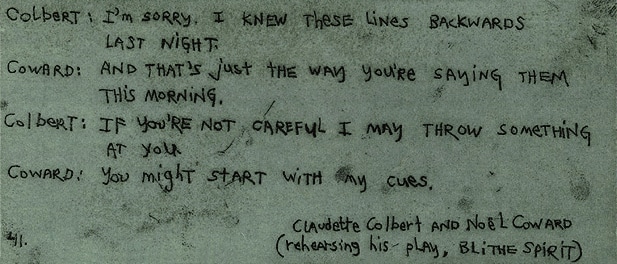 Colbert: I'm SORRY. I KNEW THESE LINES BACKWARDS
LAST NIGHT.
COWARD: AND THAT'S just THE WAY YOU'RE SAYING THEM
THIS MORNING.
Colbert: IF YOU'RE NOT CAREFUL I MAY THROW SOMETHING
AT YOU
COWARD: You might START WITH my cues.
Claudette Colbert AND NOËL COWARD
(rehearsing his play, BLITHE SPIRIT)
41.